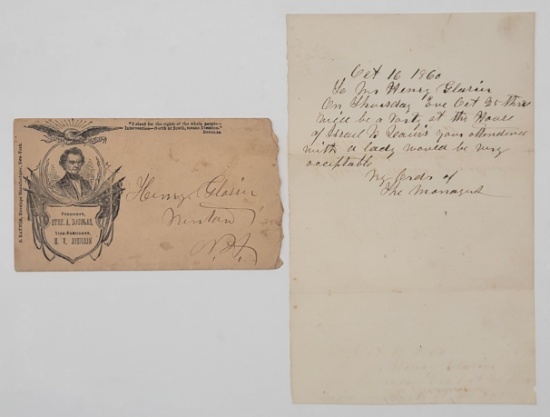 "I stand for the rights of the whole people—
Intervention—North or South, means Disunion."
DOUGLAS.
President,
STEP. A. DOUGLAS,
Vice-President,
H. V. JOHNSON
Henry Glasier
N.H.
Oct 16 1860
To Mr Henry Glasier
On Thursday Eve Oct 25 there
will be a Party at the House
of Israel your attendance
with a lady would be very
acceptable
of
The Managers